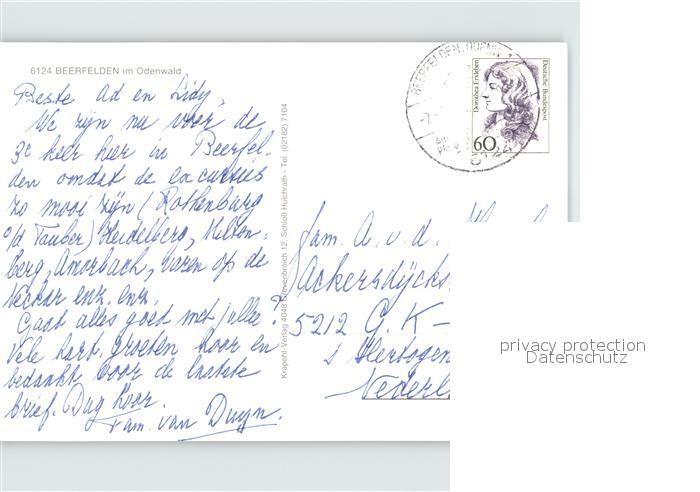 6124 BEERFELDEN im Odenwald
Beste Ad en Lidy,
We zijn nu voor de
3e keer hier in Beerfel-
den omdat de excursies
zo mooi zijn (Rothenburg
o/d Tauber) Heidelberg, Milten-
berg, Amorbach, varen op de
Neckar enz. enz.
Gaat alles goed met jullie?
Vele hart. groeten hoor en
bedankt voor de laatste
brief. Dag hoor.
Fam. van Duyn.
Krapohl-Verlag 4048 Grevenbroich 12, Schloß Hülchrath - Tel. (02182) 7104
BEERFELDEN, ODENW
6124
Dorothea Erxleben
Deutsche Bundespost
60
Fam. A. v. d.
Ackersdijcks
5212 G.K-
's Hertogen
Nederl
privacy protection
Datenschutz